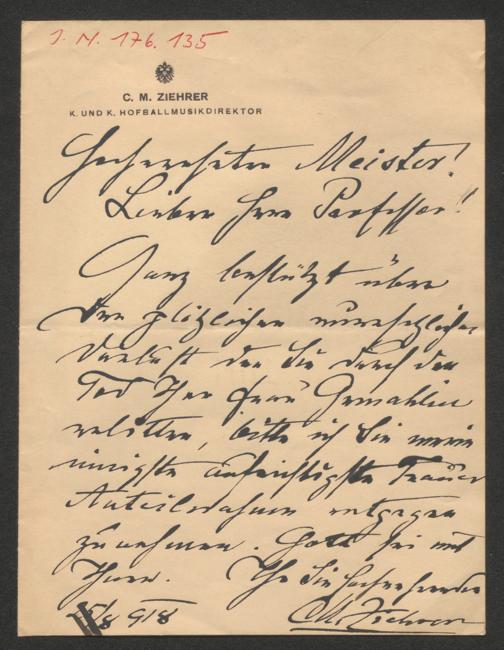 J. N. 176.135
C. M. ZIEHRER
K. UND K. HOFBALLMUSIKDIREKTOR
Hochverehrter Meister!
Lieber Herr Professor!!
Ganz bestürzt über
den plötzlichen unersetzlichen
Verlust den Sie durch den
Tod Ihrer Frau Gemahlin
erlitten, bitte ich Sie meine
innigste aufrichtigste Trauer
Anteilnahme entgegen
zu nehmen. Gott sei mit
Ihnen. Ihr Sie hochverehrender
/8 918 CM. Ziehrer